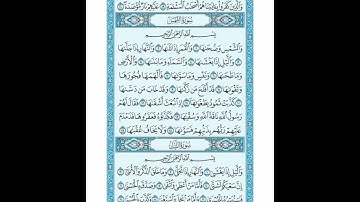 وَالَّذِينَ كَفَرُوا بِآيَاتِنَا هُمْ أَصْحَابُ الْمَشْأَمَةِ ۝ عَلَيْهِمْ نَارٌ مُؤْصَدَةٌ ۝
سُورَةُ الشَّمْسِ
بِسْمِ اللَّهِ الرَّحْمَنِ الرَّحِيمِ
وَالشَّمْسِ وَضُحَاهَا ۝ وَالْقَمَرِ إِذَا تَلَاهَا ۝ وَالنَّهَارِ إِذَا جَلَّاهَا
۝ وَاللَّيْلِ إِذَا يَغْشَاهَا ۝ وَالسَّمَاءِ وَمَا بَنَاهَا ۝ وَالْأَرْضِ
وَمَا طَحَاهَا ۝ وَنَفْسٍ وَمَا سَوَّاهَا ۝ فَأَلْهَمَهَا فُجُورَهَا
وَتَقْوَاهَا ۝ قَدْ أَفْلَحَ مَنْ زَكَّاهَا ۝ وَقَدْ خَابَ مَنْ دَسَّاهَا
۝ كَذَّبَتْ ثَمُودُ بِطَغْوَاهَا ۝ إِذِ انْبَعَثَ أَشْقَاهَا ۝ فَقَالَ لَهُمْ
رَسُولُ اللَّهِ نَاقَةَ اللَّهِ وَسُقْيَاهَا ۝ فَكَذَّبُوهُ فَعَقَرُوهَا فَدَمْدَمَ
عَلَيْهِمْ رَبُّهُمْ بِذَنْبِهِمْ فَسَوَّاهَا ۝ وَلَا يَخَافُ عُقْبَاهَا ۝
سُورَةُ اللَّيْلِ
بِسْمِ اللَّهِ الرَّحْمَنِ الرَّحِيمِ
وَاللَّيْلِ إِذَا يَغْشَى ۝ وَالنَّهَارِ إِذَا تَجَلَّى ۝ وَمَا خَلَقَ الذَّكَرَ وَالْأُنْثَى ۝
إِنَّ سَعْيَكُمْ لَشَتَّى ۝ فَأَمَّا مَنْ أَعْطَى وَاتَّقَى ۝ وَصَدَّقَ بِالْحُسْنَى ۝